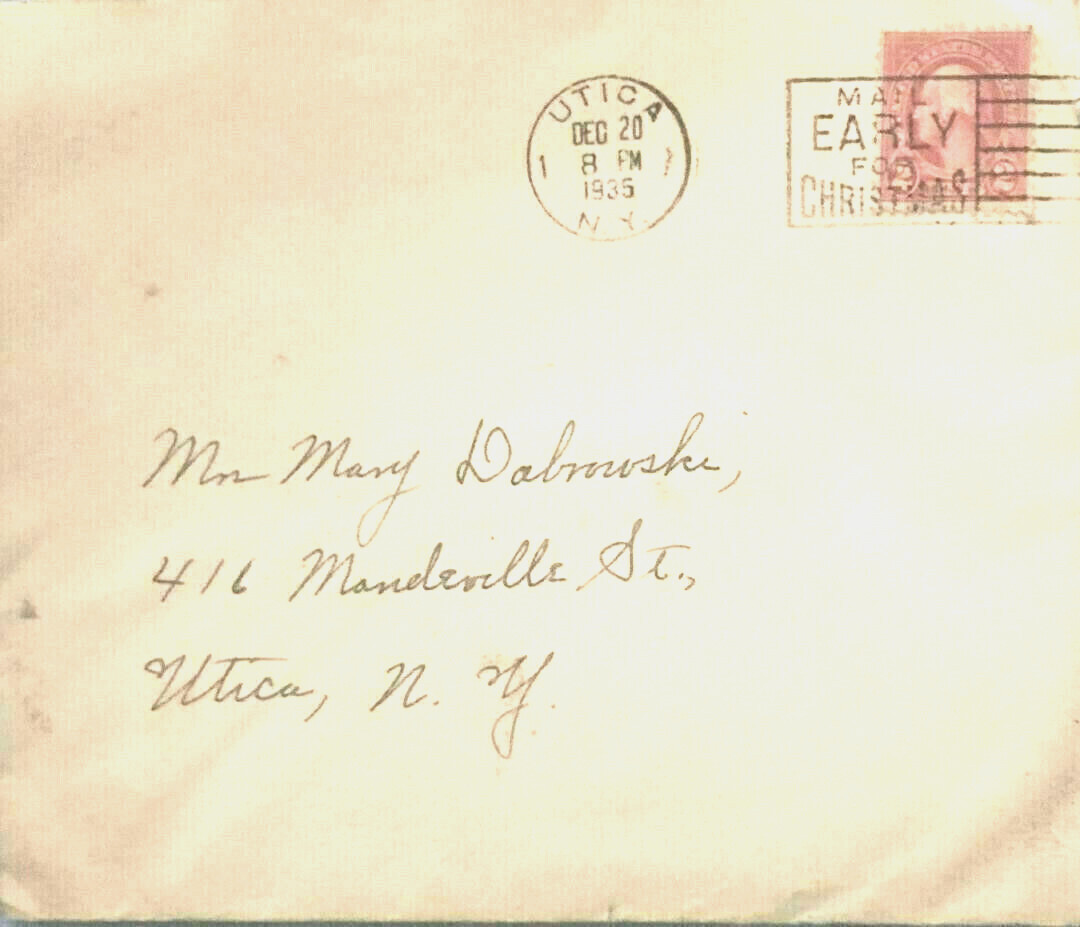 UTICA
DEC 20
8 PM
1935
N.Y.
1
MAIL
EARLY
FOR
CHRISTMAS
2 2
Mrs Mary Dabrowski,
416 Mandeville St.,
Utica, N. Y.